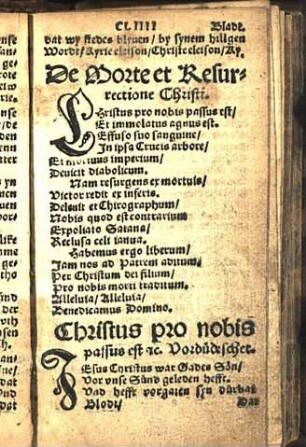 CLIIII Bladt.
dat wy stedes blyuen/ by synem hilligen
Wordt/ Kyrie eleison/ Christe eleison/ Ky.
De Morte et Resur-
rectione Christi.
CHristus pro nobis passus est/
Et immolatus agnus est.
Effuso suo sanguine/
In ipsa Crucis arbore/
Et mortuus imperium/
Deuicit diabolicum.
Nam resurgens ex mortuis/
Victor redit ex inferis.
Deleuit et Chirographum/
Nobis quod est contrarium
Expoliato Satana/
Reclusa celi ianua.
Habemus ergo liberum/
Iam nos ad Patrem aditum.
Per Christum dei filium/
Pro nobis morti traditum.
Alleluia/ Alleluia/
Benedicamus Domino.
Christus pro nobis
passus est ꝛc. Vordüdeschet.
IEsus Christus war Gades Sön/
Vor vnse Sünd geleden hefft.
Vnd hefft vorgaten syn dürbar
Blodt/
Dar